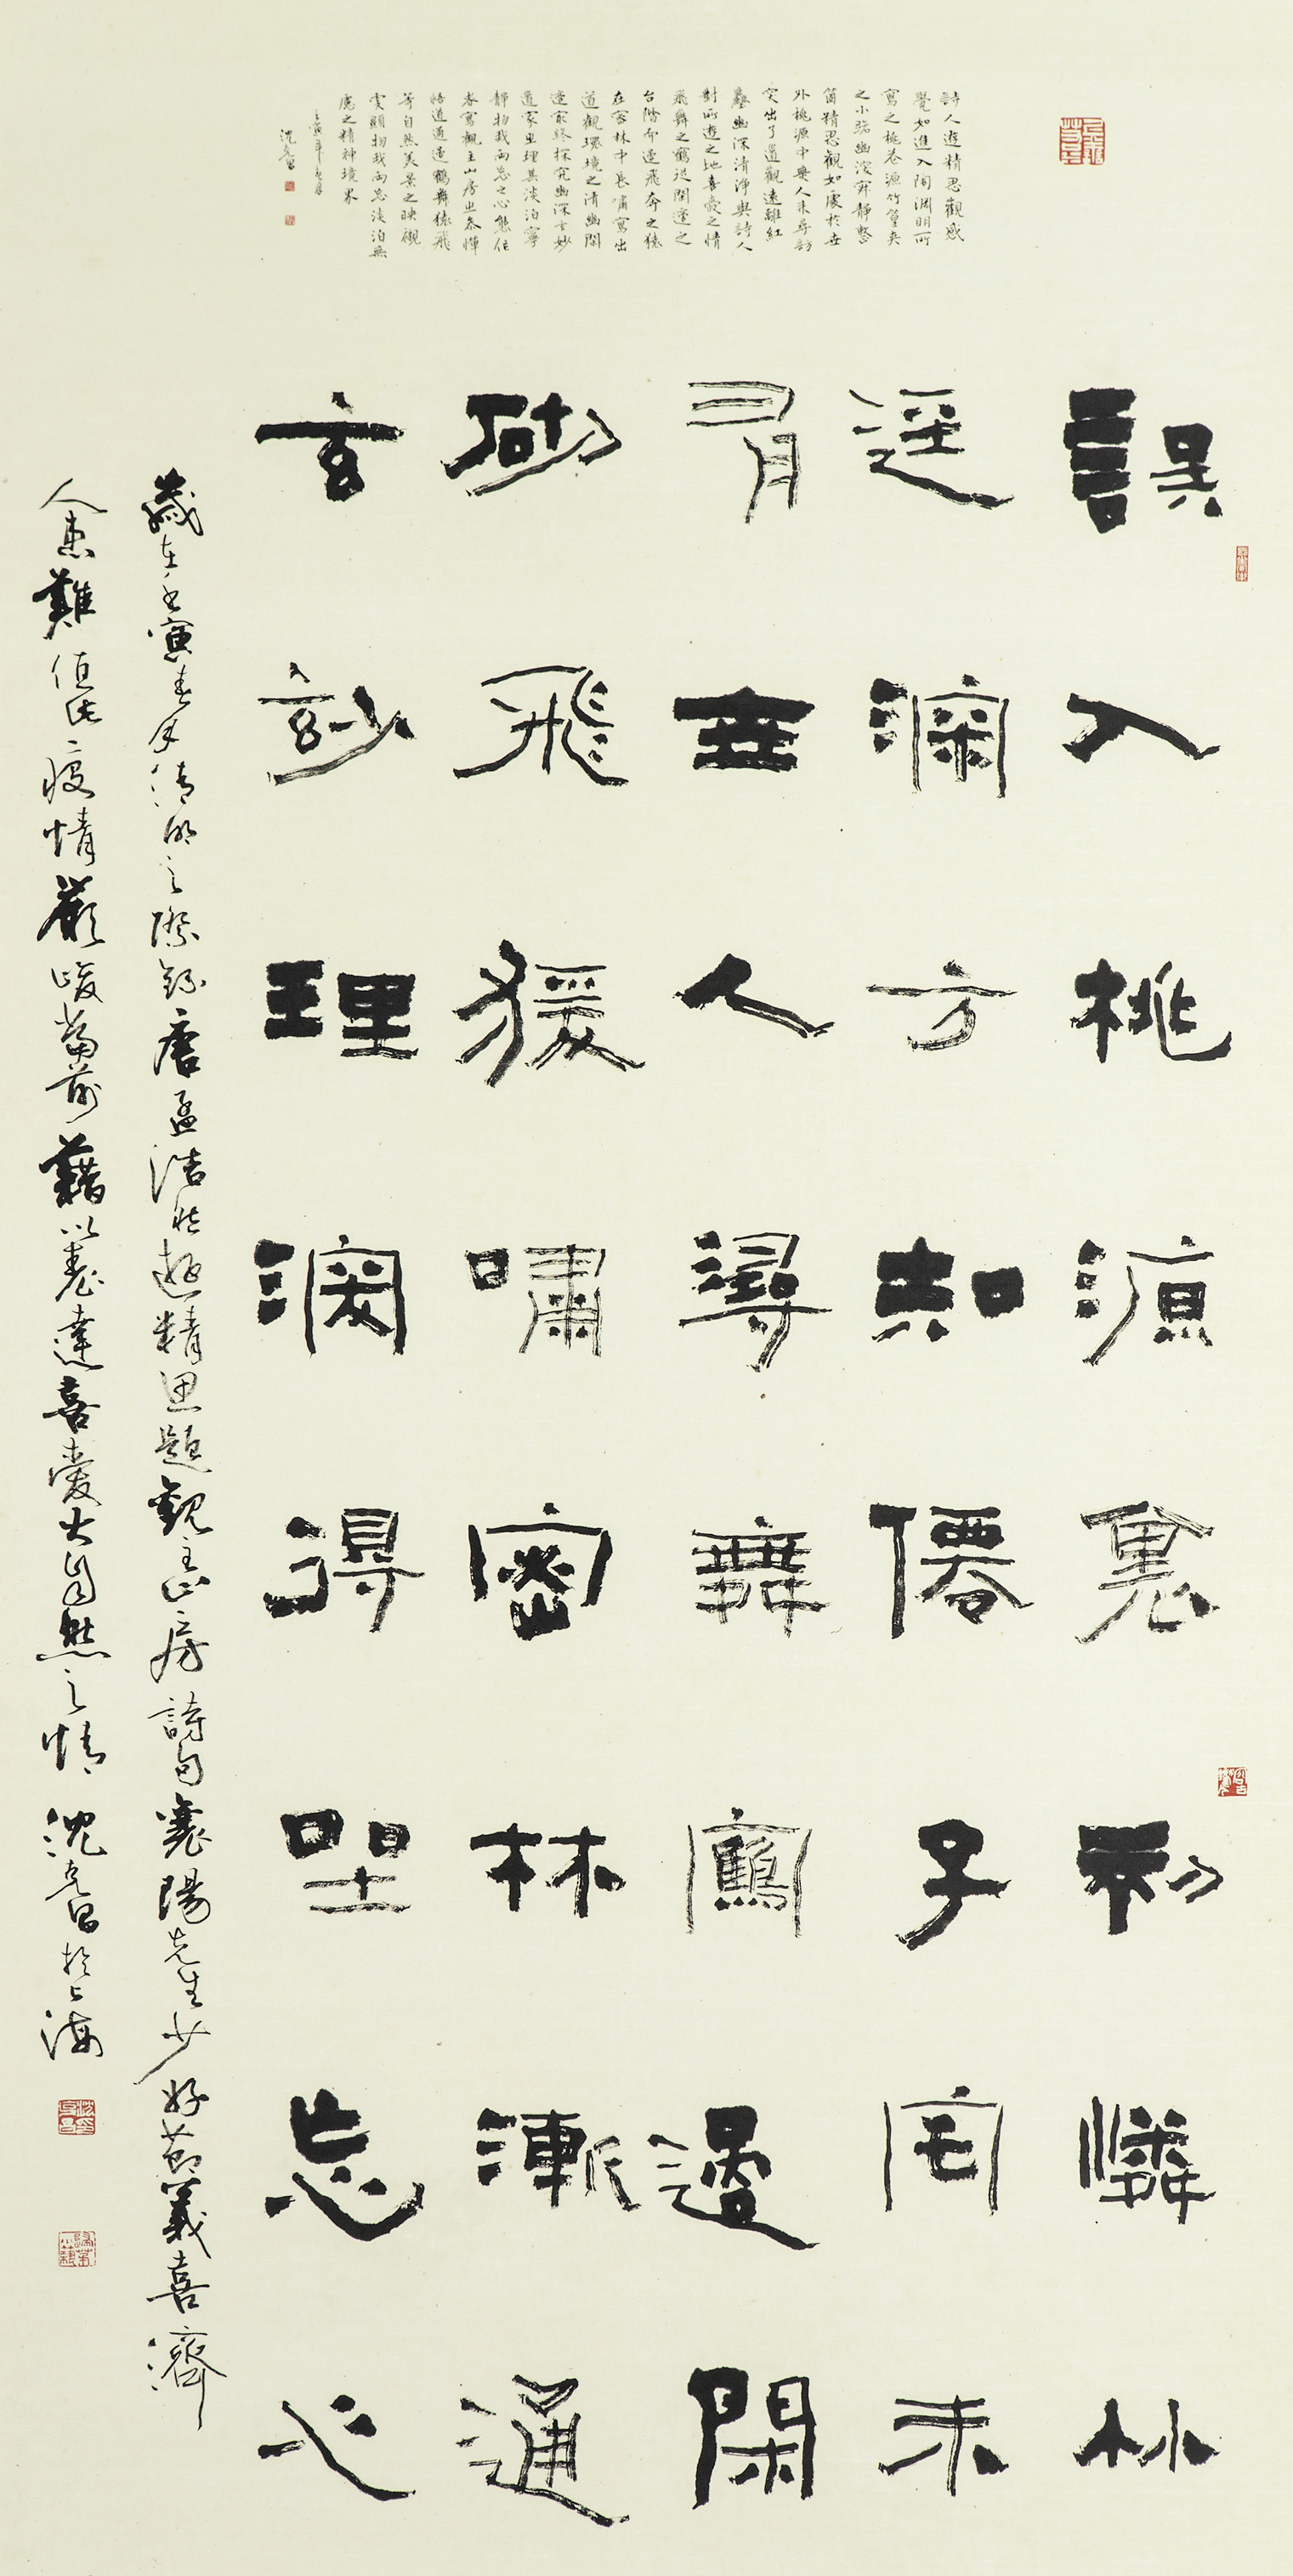 詩人遊精思觀感
覺如進入陶淵明所
寫之桃花源竹篁夾
之小路幽深寂靜整
箇精思觀如處於世
外桃源中無人來尋訪
突出了道觀遠離紅
塵幽深清淨與詩人
對所遊之地喜愛之情
飛舞之鶴閑之
台階速飛奔之猿
在密林中長嘯寫出
道觀環境之清幽閑
最終探究幽深玄妙
道家之理其淡泊寧
靜物我兩忘之心態
寫觀主山房
悟道逍遙鶴舞猿飛
等自然美景之映襯
突顯物我兩忘淡泊無
慮之精神境界
壬寅年
沈
誤入桃源裏初憐竹
逕深方知僊子宅未
有世人尋舞鶴過閑
砌飛猨嘯密林漸通
玄玅理深得坐忘心
歲在壬寅春月清明之際錄唐孟浩然遊精思題觀主山房詩句襄陽先生少好節義喜濟
人患難值此疫情嚴峻當前藉以表達喜愛大自然之情 沈昌於上海